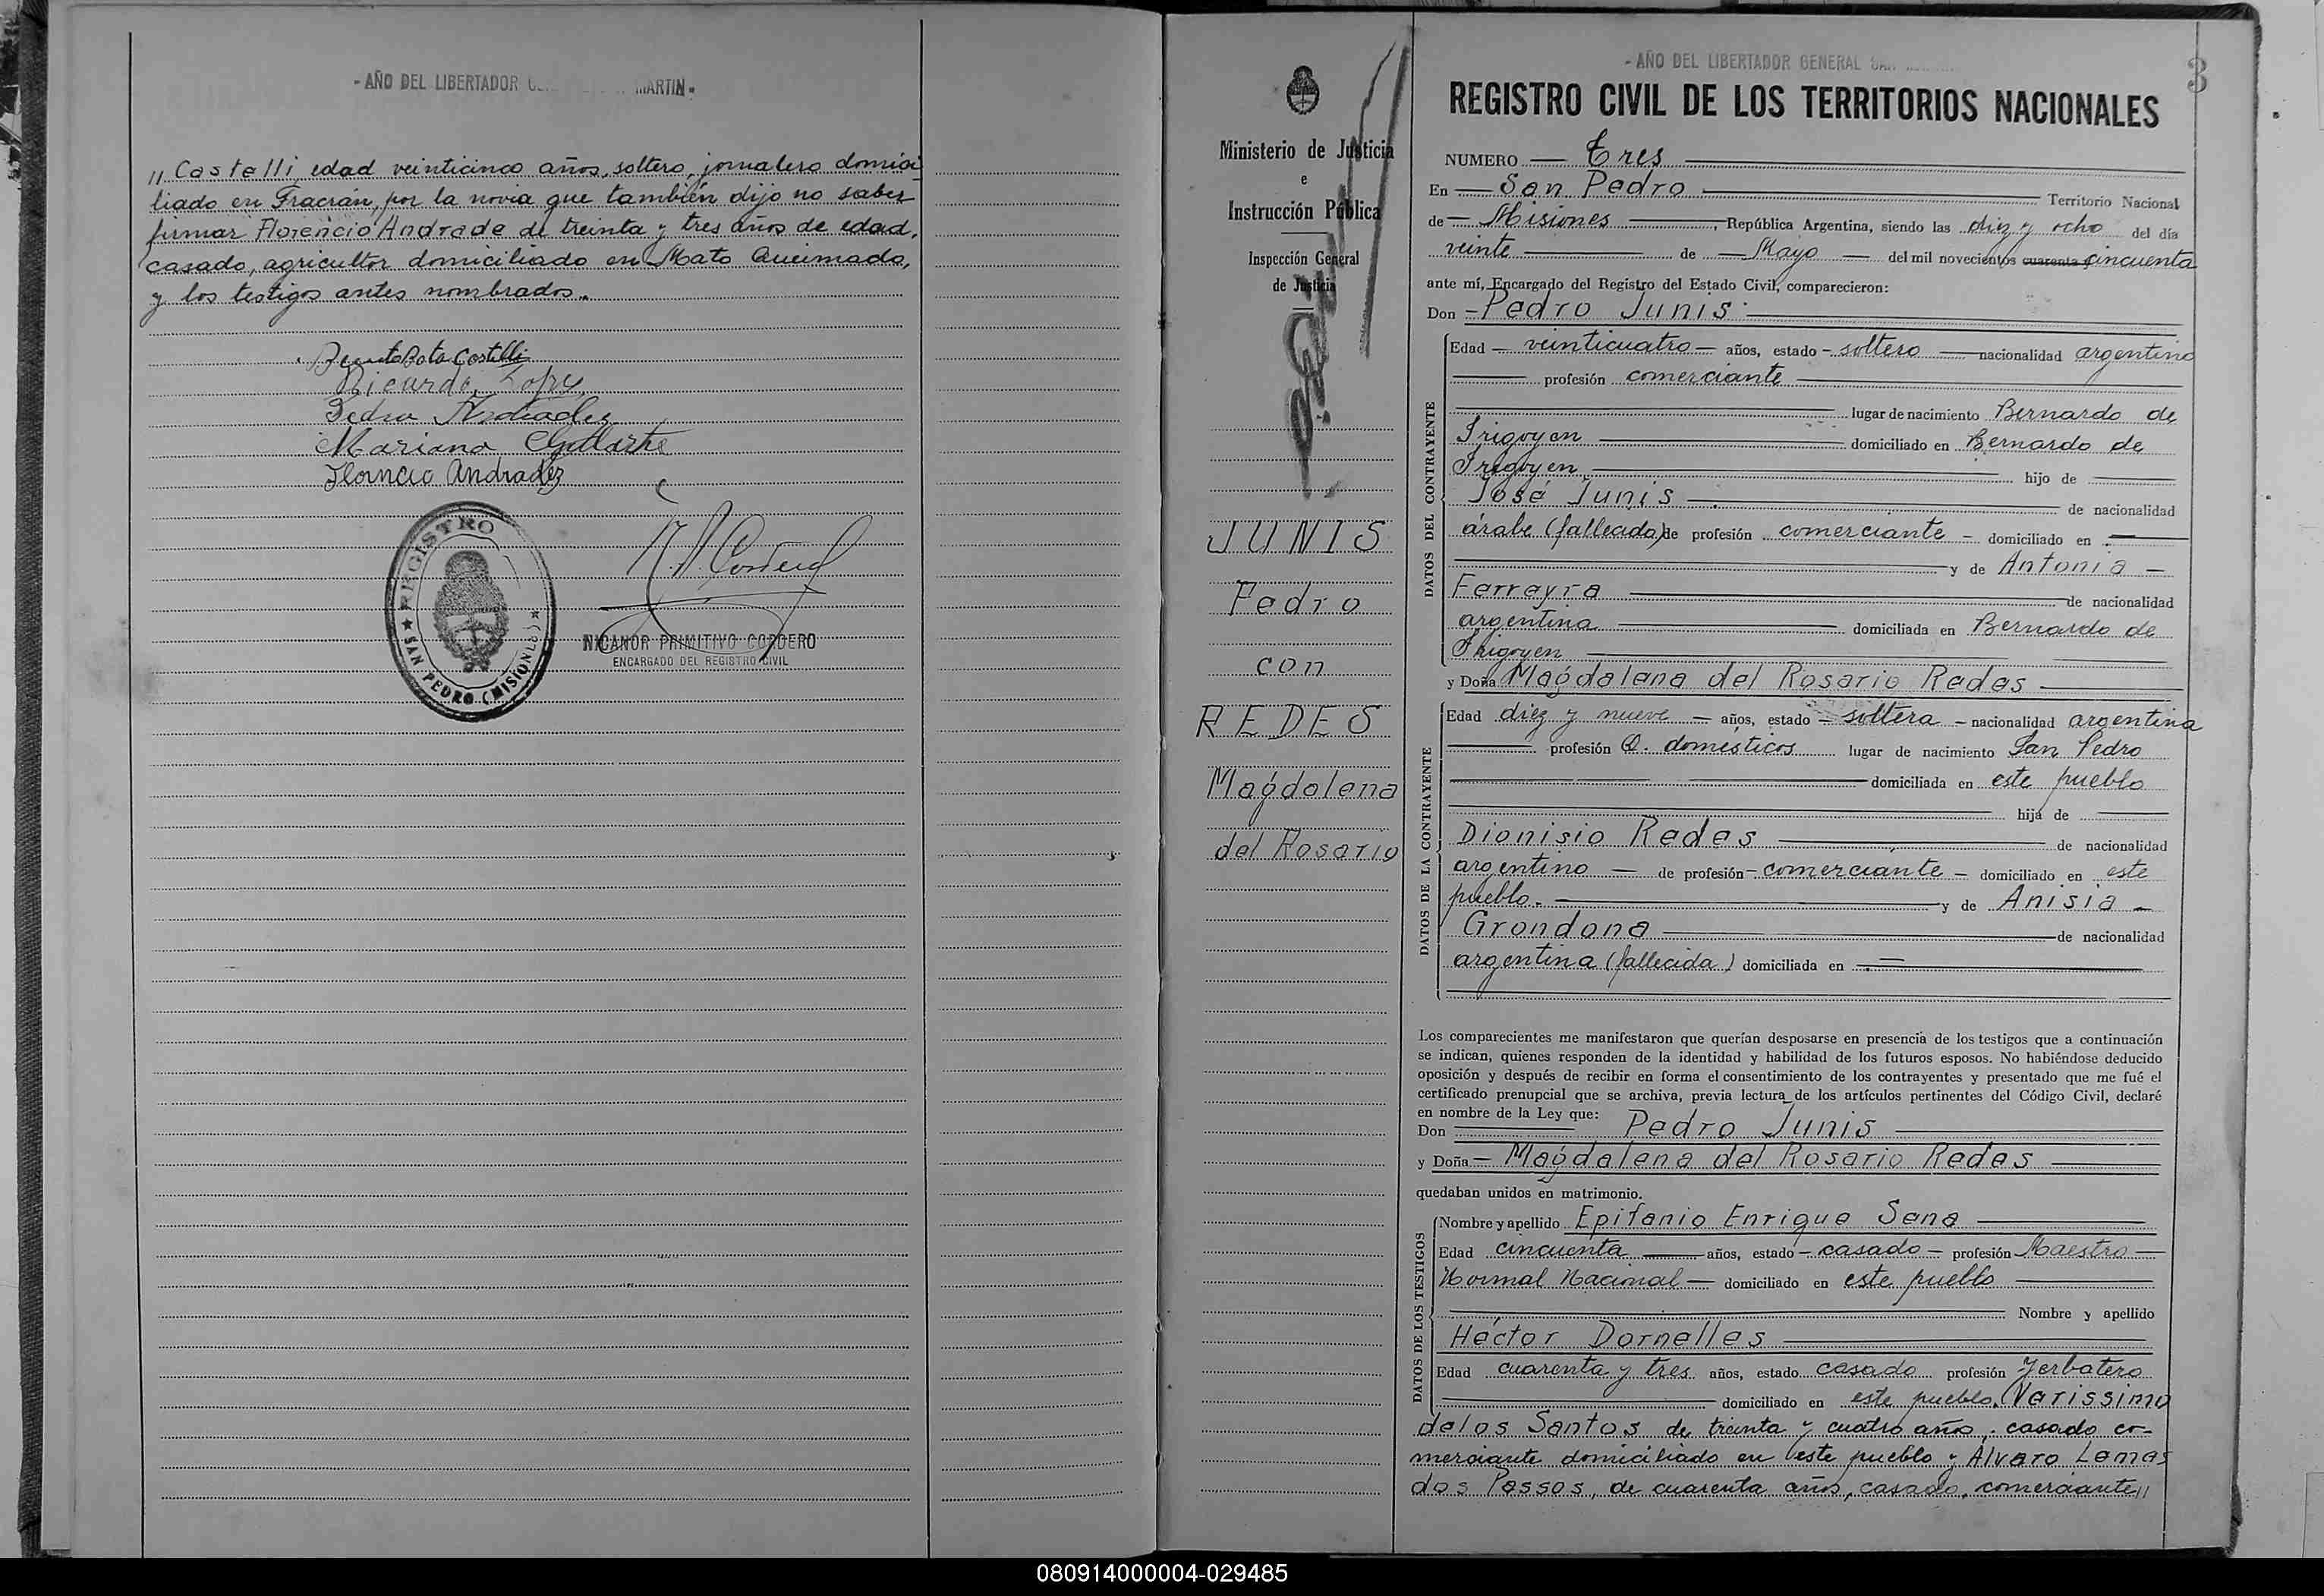 - AÑO DEL LIBERTADOR MARTIN -
〃 Castelli, edad veinticinco años, soltero, jornalero domici-
liado en Fracrán, por la novia que también dijo no saber
firmar Florencio Andrade de treinta y tres años de edad,
casado, agricultor domiciliado en Mato Queimado,
y los testigos antes nombrados.
Ricardo Lopez
Pedro Andradez
Mariano
Florencio Andradez
REGISTRO
★ SAN PEDRO (MISIONES) ★
NICANOR PRIMITIVO CORDERO
ENCARGADO DEL REGISTRO CIVIL
Ministerio de Justicia
e
Instrucción Pública
Inspección General
de Justicia
JUNIS
Pedro
con
REDES
Magdalena
del Rosario
- AÑO DEL LIBERTADOR GENERAL SAN
3
REGISTRO CIVIL DE LOS TERRITORIOS NACIONALES
NUMERO — Tres
En — San Pedro — Territorio Nacional
de — Misiones —, República Argentina, siendo las diez y ocho del día
veinte — de — Mayo — del mil novecientos cuarenta cincuenta
ante mí, Encargado del Registro del Estado Civil, comparecieron:
Don — Pedro Junis —
DATOS DEL CONTRAYENTE
Edad — veinticuatro — años, estado — soltero — nacionalidad argentino
— profesión comerciante —
— lugar de nacimiento Bernardo de
Irigoyen — domiciliado en Bernardo de
Irigoyen — hijo de —
José Junis — de nacionalidad
árabe (fallecido) de profesión comerciante — domiciliado en —
— y de Antonia —
Ferreyra — de nacionalidad
argentina — domiciliada en Bernardo de
Irigoyen —
y Doña Magdalena del Rosario Redes —
DATOS DE LA CONTRAYENTE
Edad diez y nueve — años, estado — soltera — nacionalidad argentina
— profesión Q. domésticos lugar de nacimiento San Pedro
— domiciliada en este pueblo
— hija de —
Dionisio Redes — de nacionalidad
argentino — de profesión — comerciante — domiciliado en este
pueblo. — y de Anisia —
Grondona — de nacionalidad
argentina (fallecida) domiciliada en —
Los comparecientes me manifestaron que querían desposarse en presencia de los testigos que a continuación
se indican, quienes responden de la identidad y habilidad de los futuros esposos. No habiéndose deducido
oposición y después de recibir en forma el consentimiento de los contrayentes y presentado que me fué el
certificado prenupcial que se archiva, previa lectura de los artículos pertinentes del Código Civil, declaré
en nombre de la Ley que:
Don — Pedro Junis —
y Doña — Magdalena del Rosario Redes —
quedaban unidos en matrimonio.
DATOS DE LOS TESTIGOS
Nombre y apellido Epifanio Enrique Sena —
Edad cincuenta — años, estado — casado — profesión Maestro —
Normal Nacional — domiciliado en este pueblo —
— Nombre y apellido
Héctor Dornelles —
Edad cuarenta y tres años, estado casado profesión Yerbatero
— domiciliado en este pueblo, Verissimo
delos Santos de treinta y cuatro años, casado co-
merciante domiciliado en este pueblo y Alvaro Lemes
dos Passos, de cuarenta años, casado, comerciante 〃
080914000004-029485